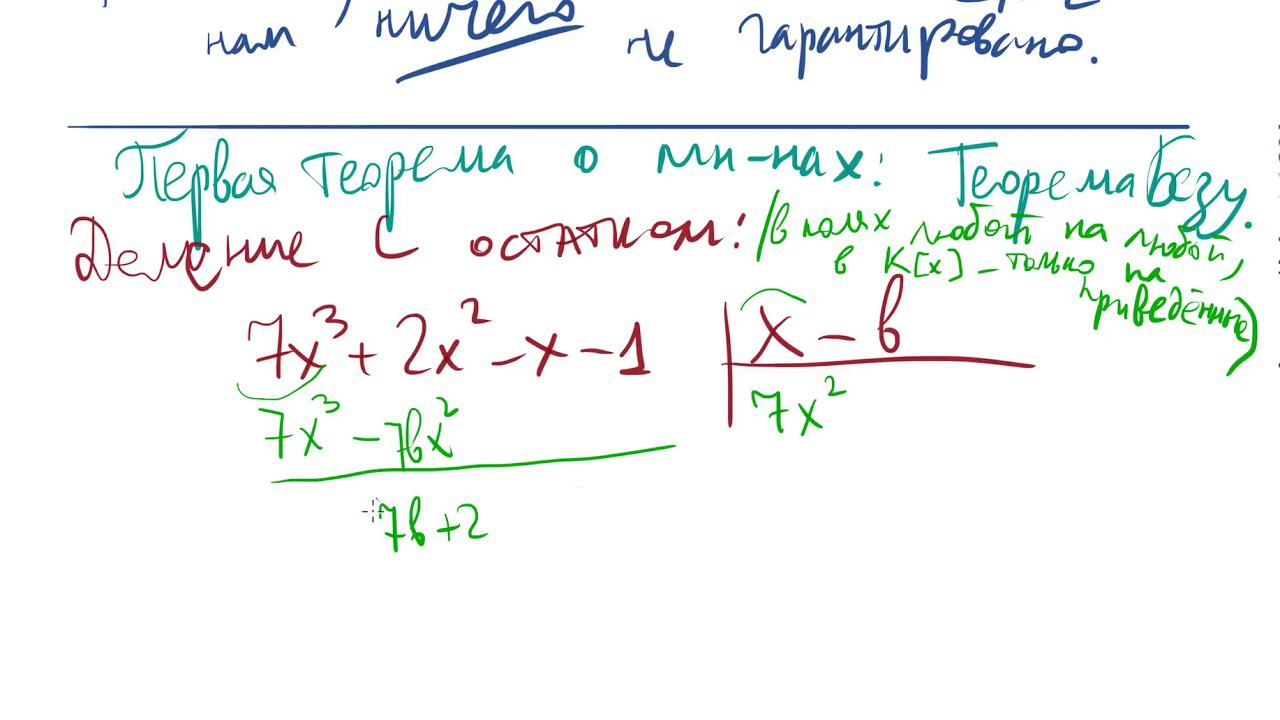 нам ничего не гарантировано.
Первая теорема о мн-нах: Теорема Безу.
Деление с остатком: (в полях любой на любой,
в K[x] – только на
приведённые)
7x³ + 2x² – x – 1 | x – b
7x³ – 7bx² 7x²
7b + 2